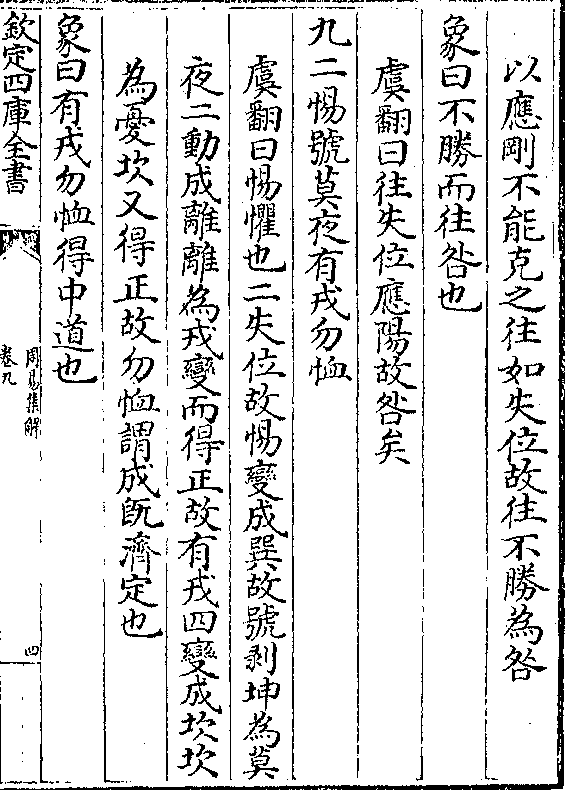 以應剛不能克之往如失位故往不勝為咎
象曰不勝而往咎也
虞翻曰往失位應陽故咎矣
九二惕號莫夜有戎勿恤
虞翻曰惕懼也二失位故惕變成巽故號剥坤為莫
夜二動成離離為戎變而得正故有戎四變成坎坎
為憂坎又得正故勿恤謂成旣濟定也
象曰有戎勿恤得中道也
欽定四庫全書
周易集解
卷九
四